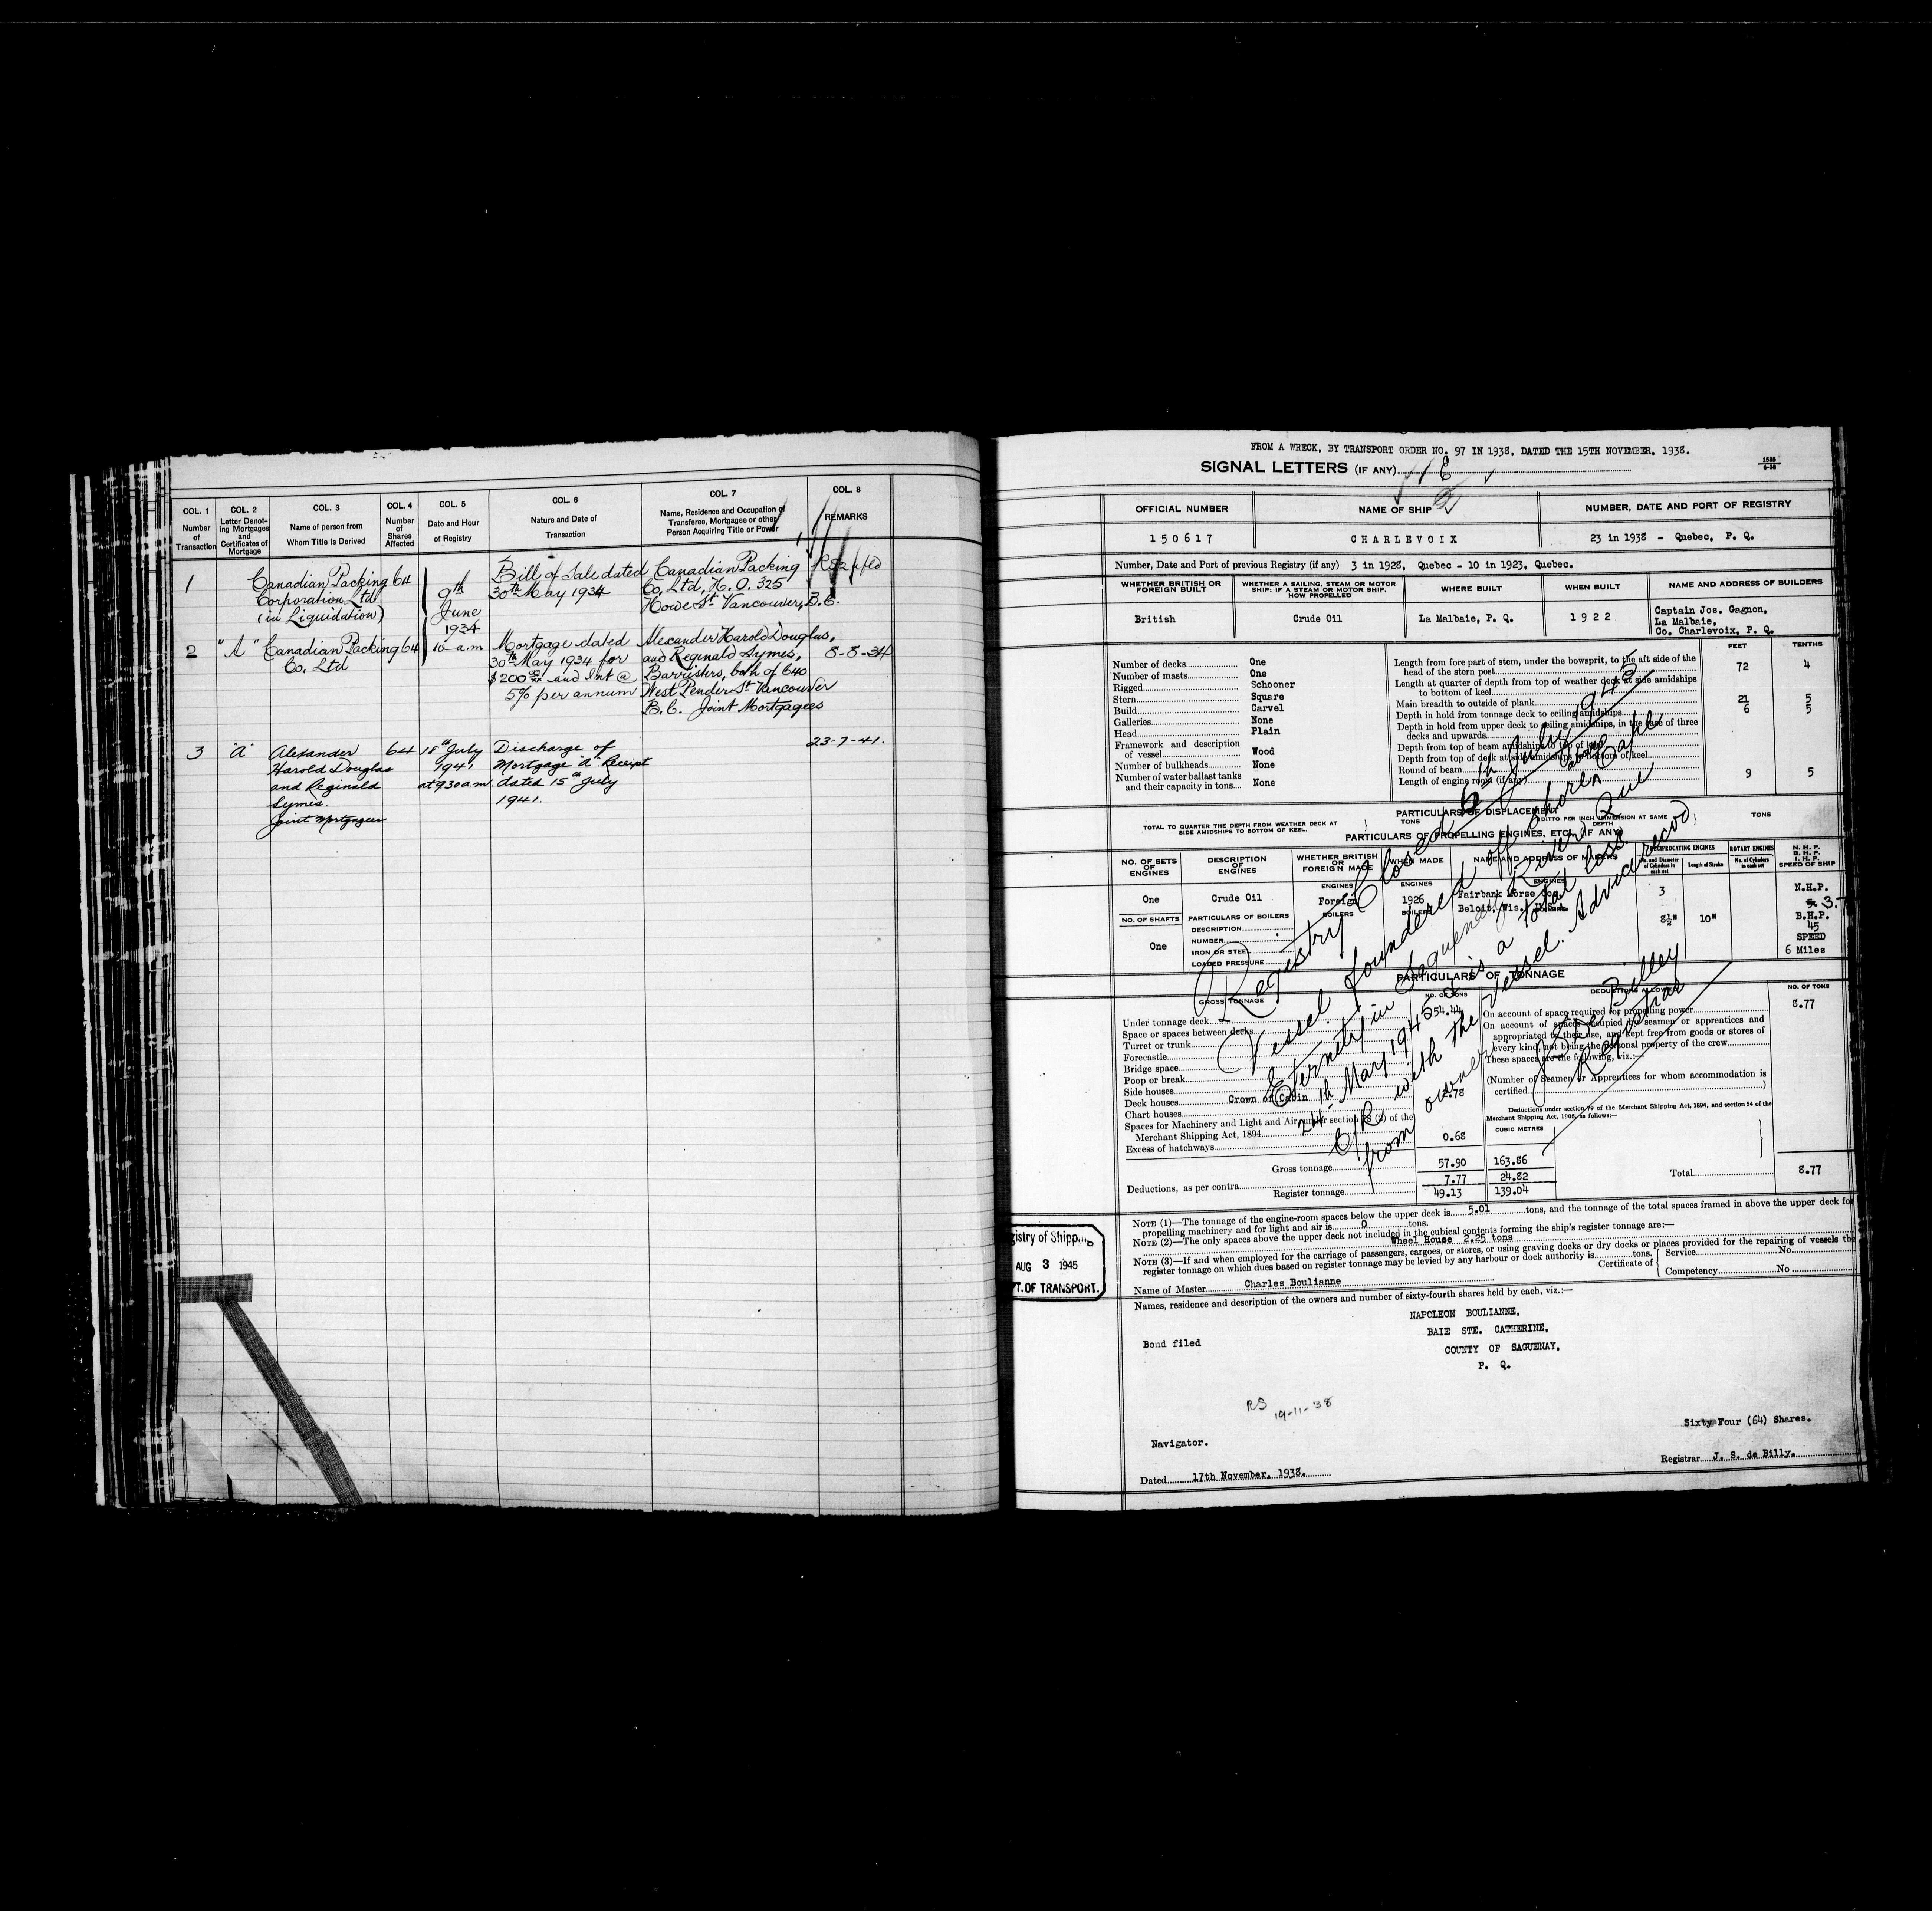 COL. 1
Number
of
Transaction
COL. 2
Letter Denot-
ing Mortgages
and
Certificates of
Mortgage
COL. 3
Name of person from
Whom Title is Derived
COL. 4
Number
of
Shares
Affected
COL. 5
Date and Hour
of Registry
COL. 6
Nature and Date of
Transaction
COL. 7
Name, Residence and Occupation of
Transferee, Mortgagee or other
Person Acquiring Title or Power
COL. 8
REMARKS
1
Canadian Packing
Corporation Ltd
(in Liquidation)
64
9th
June
1934
10 a.m
Bill of Sale dated
30th May 1934
Canadian Packing
Co, Ltd, H. O. 325
Howe St Vancouver, B.C.
2
"A"
Canadian Packing
Co. Ltd
64
Mortgage dated
30th May 1934 for
$200 and Int @
5% per annum
Alexander Harold Douglas,
and Reginald Symes,
Barristers, both of 640
West Pender St Vancouver
B.C. Joint Mortgagees
8-8-34
3
"A"
Alexander
Harold Douglas
and Reginald
Symes.
Joint Mortgagees
64
18th July
1941
at 9 30 a.m.
Discharge of
Mortgage "A" Receipt
dated 15th July
1941.
23-7-41.
FROM A WRECK, BY TRANSPORT ORDER NO. 97 IN 1938, DATED THE 15TH NOVEMBER, 1938.
SIGNAL LETTERS (IF ANY)
1535
6-38
OFFICIAL NUMBER
NAME OF SHIP
NUMBER, DATE AND PORT OF REGISTRY
150617
CHARLEVOIX
23 in 1938 - Quebec, P. Q.
Number, Date and Port of previous Registry (if any) 3 in 1928, Quebec - 10 in 1923, Quebec.
WHETHER BRITISH OR
FOREIGN BUILT
WHETHER A SAILING, STEAM OR MOTOR
SHIP; IF A STEAM OR MOTOR SHIP,
HOW PROPELLED
WHERE BUILT
WHEN BUILT
NAME AND ADDRESS OF BUILDERS
British
Crude Oil
La Malbaie, P. Q.
1922
Captain Jos. Gagnon,
La Malbaie,
Co. Charlevoix, P. Q.
FEET
TENTHS
Number of decks One
Number of masts One
Rigged Schooner
Stern Square
Build Carvel
Galleries None
Head Plain
Framework and description
of vessel Wood
Number of bulkheads None
Number of water ballast tanks
and their capacity in tons None
Length from fore part of stem, under the bowsprit, to the aft side of the
head of the stern post 72 4
Length at quarter of depth from top of weather deck at side amidships
to bottom of keel
Main breadth to outside of plank 21 5
Depth in hold from tonnage deck to ceiling amidships 6 5
Depth in hold from upper deck to ceiling amidships, in the case of three
decks and upwards
Depth from top of beam amidships to top of keel
Depth from top of deck at side amidships to bottom of keel
Round of beam
Length of engine room (if any) 9 5
PARTICULARS OF DISPLACEMENT
TOTAL TO QUARTER THE DEPTH FROM WEATHER DECK AT
SIDE AMIDSHIPS TO BOTTOM OF KEEL.
TONS
DITTO PER INCH IMMERSION AT SAME
DEPTH
TONS
PARTICULARS OF PROPELLING ENGINES, ETC. (IF ANY)
NO. OF SETS
OF
ENGINES
DESCRIPTION
OF
ENGINES
WHETHER BRITISH
OR
FOREIGN MADE
WHEN MADE
NAME AND ADDRESS OF MAKERS
RECIPROCATING ENGINES
No. and Diameter
of Cylinders in
each set
Length of Stroke
ROTARY ENGINES
No. of Cylinders
in each set
N. H. P.
B. H. P.
I. H. P.
SPEED OF SHIP
ENGINES
ENGINES
ENGINES
One
Crude Oil
Foreign
1926
Fairbank Morse Co.
Beloit, Wis. U.S.A.
3
8½"
10"
N.H.P.
3.7
B.H.P.
45
SPEED
6 Miles
NO. OF SHAFTS
One
PARTICULARS OF BOILERS
DESCRIPTION
NUMBER
IRON OR STEEL
LOADED PRESSURE
BOILERS
BOILERS
PARTICULARS OF TONNAGE
GROSS TONNAGE
NO. OF TONS
DEDUCTIONS ALLOWED
NO. OF TONS
Under tonnage deck 54.44
Space or spaces between decks
Turret or trunk
Forecastle
Bridge space
Poop or break
Side houses
Deck houses Crown of Cabin 2.78
Chart houses
Spaces for Machinery and Light and Air, under section 78 (2) of the
Merchant Shipping Act, 1894
Excess of hatchways 0.68
Gross tonnage 57.90 163.86
Deductions, as per contra 7.77 24.82
Register tonnage 49.13 139.04
On account of space required for propelling power 8.77
On account of spaces occupied by seamen or apprentices and
appropriated to their use, and kept free from goods or stores of
every kind, not being the personal property of the crew
These spaces are the following, viz.:—
(Number of Seamen or Apprentices for whom accommodation is
certified)
Deductions under section 79 of the Merchant Shipping Act, 1894, and section 54 of the
Merchant Shipping Act, 1906, as follows:—
CUBIC METRES
Total 8.77
Registry Closed 6th July 1945.
Vessel foundered off shore, above Cape
Eternity in Saguenay River Que
24th May 1945 & is a total loss.
C/R with the Vessel. Advice recvd
from owner
J S de Billey
Registrar
NOTE (1)—The tonnage of the engine-room spaces below the upper deck is 5.01 tons, and the tonnage of the total spaces framed in above the upper deck for
propelling machinery and for light and air is 0 tons.
NOTE (2)—The only spaces above the upper deck not included in the cubical contents forming the ship's register tonnage are:—
Wheel House 2.25 tons
NOTE (3)—If and when employed for the carriage of passengers, cargoes, or stores, or using graving docks or dry docks or places provided for the repairing of vessels the
register tonnage on which dues based on register tonnage may be levied by any harbour or dock authority is tons.
Certificate of
Service No.
Competency No
Name of Master Charles Boulianne
Names, residence and description of the owners and number of sixty-fourth shares held by each, viz.:—
gistry of Shipping
AUG 3 1945
PT. OF TRANSPORT.
NAPOLEON BOULIANNE,
BAIE STE. CATHERINE,
COUNTY OF SAGUENAY,
P. Q.
Bond filed
RS 19-11-38
Sixty Four (64) Shares.
Navigator.
Dated 17th November, 1938.
Registrar J. S. de Billy.